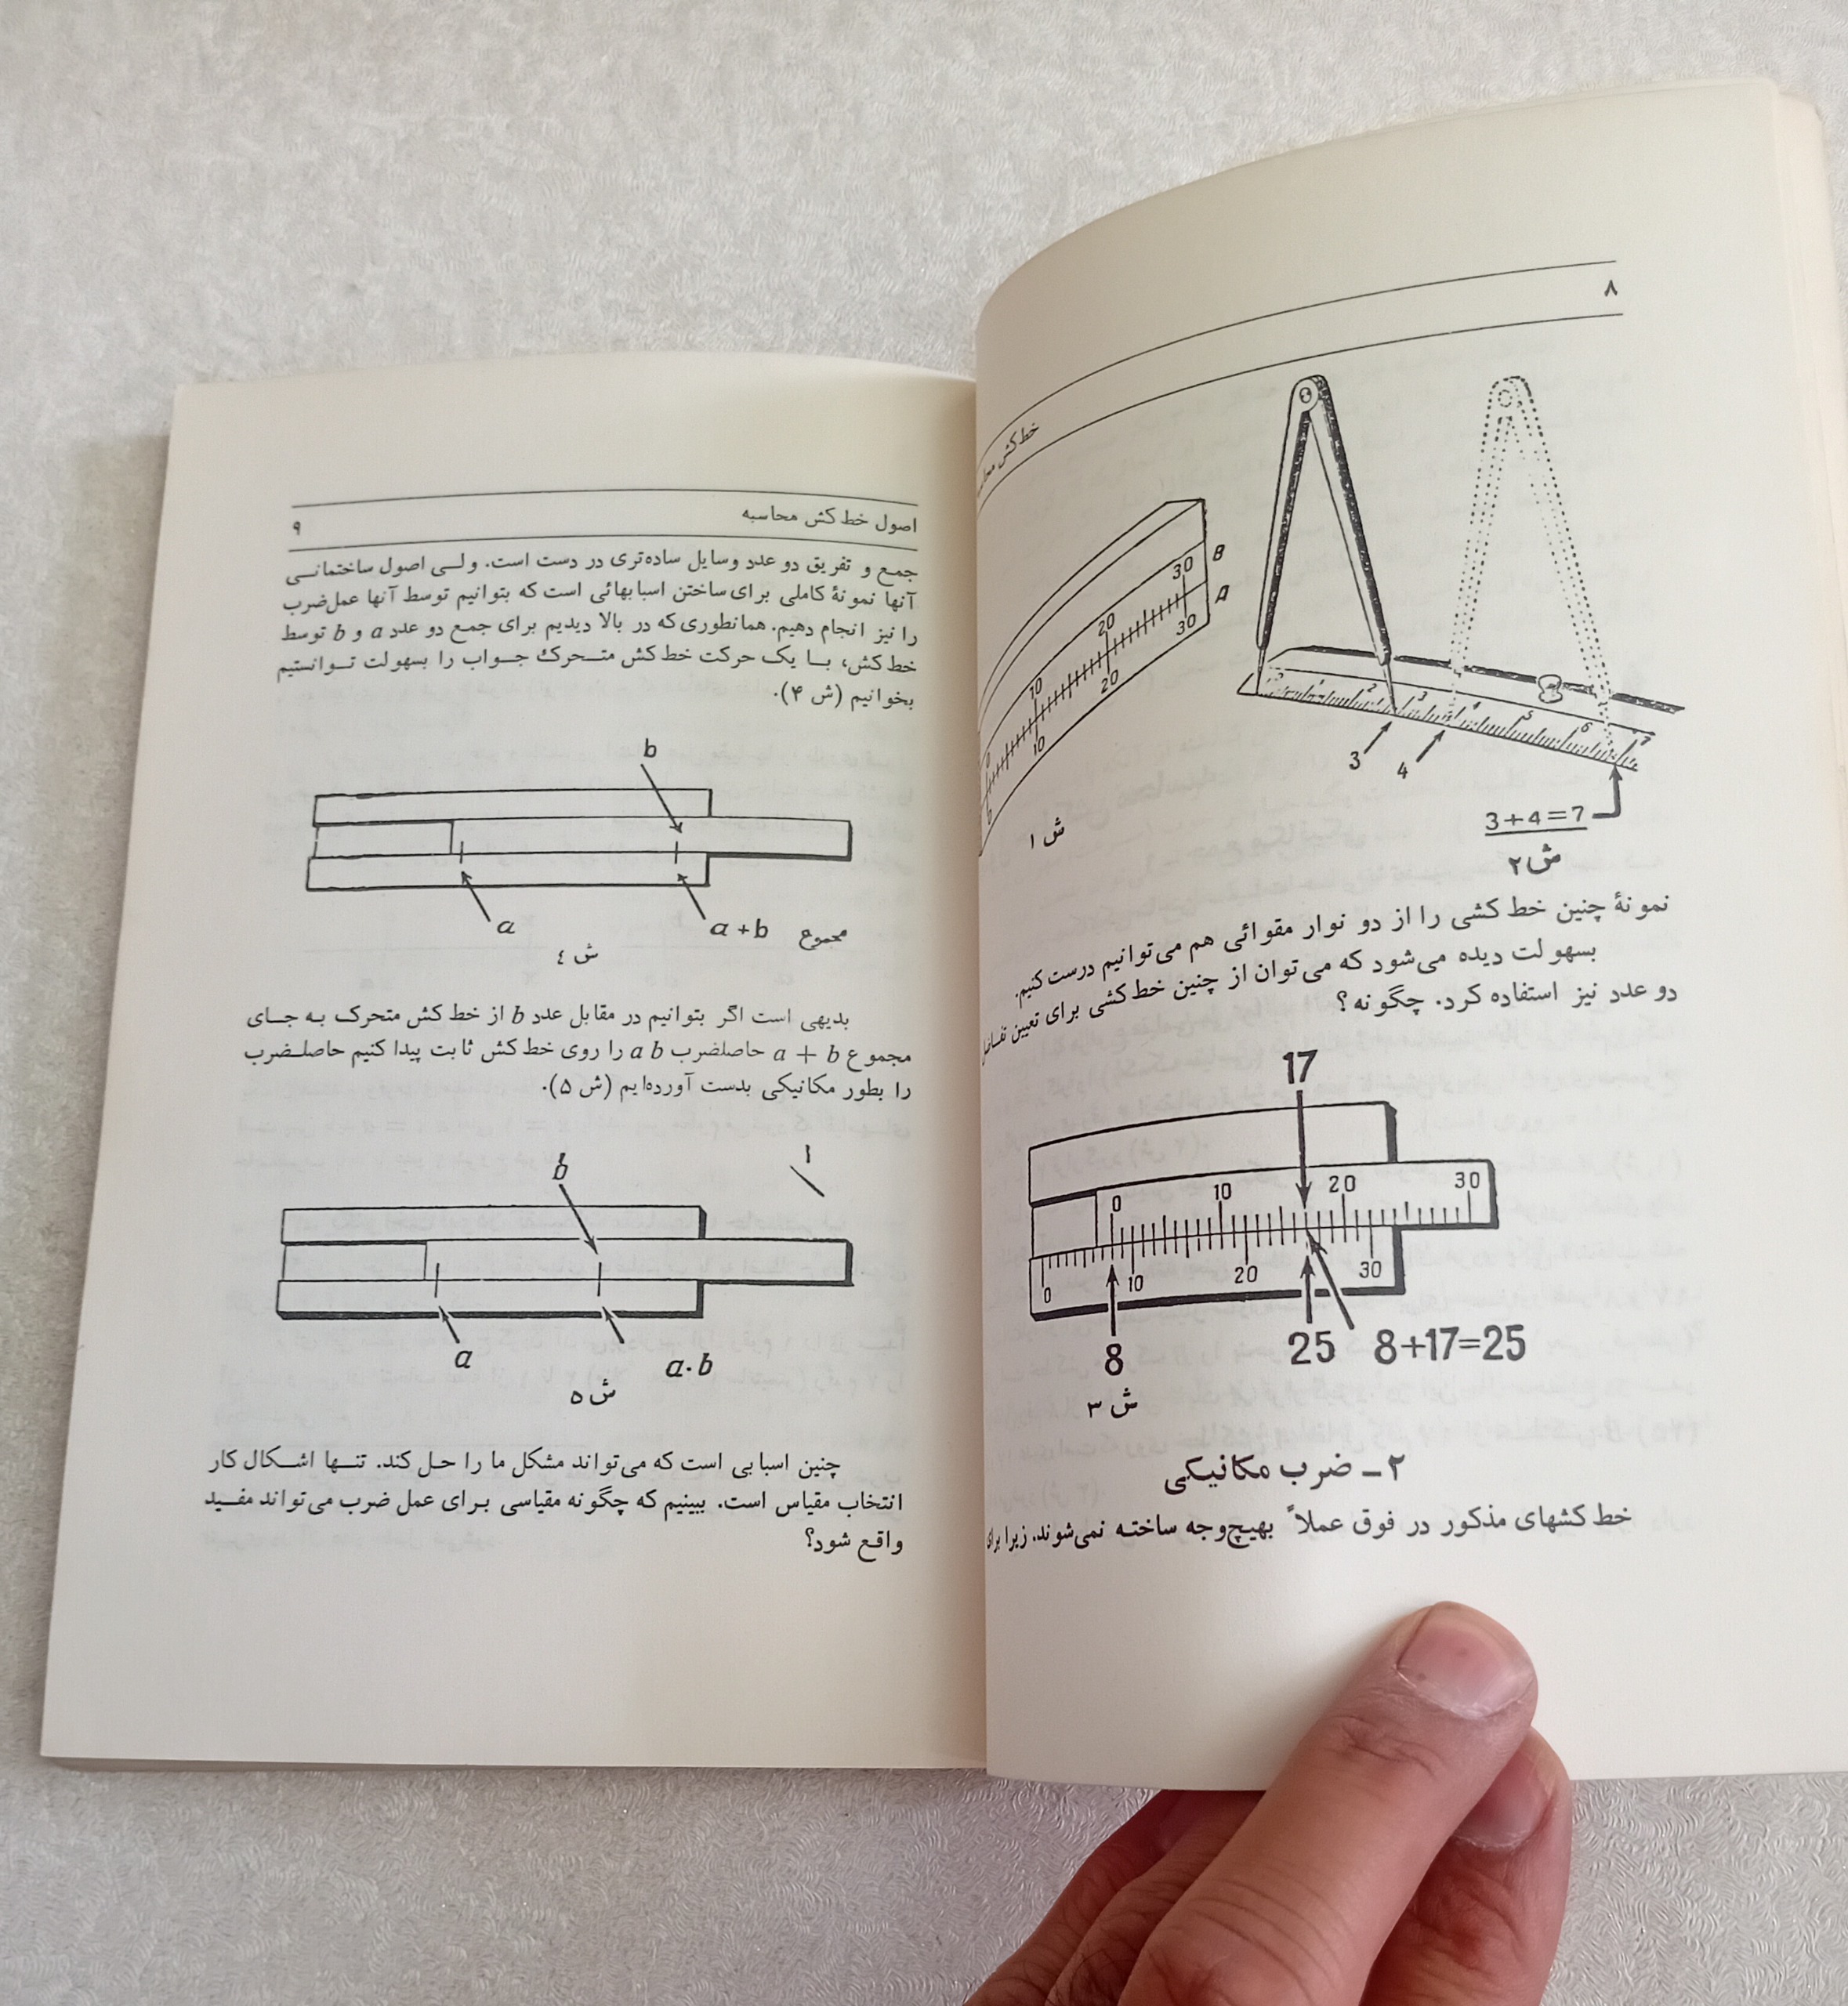 ۸
خط‌کش
B
A
30
20
10
0
30
20
10
0
ش ۱
0 1 2 3 4 5 6 7
3
4
3+4=7
ش ۲
نمونهٔ چنین خط‌کشی را از دو نوار مقوائی هم می‌توانیم درست کنیم.
بسهولت دیده می‌شود که می‌توان از چنین خط‌کشی برای تعیین تفاضل
دو عدد نیز استفاده کرد. چگونه؟
17
0 10 20 30
0 10 20 30
8
25
8+17=25
ش ۳
۲ـ ضرب مکانیکی
خط‌کشهای مذکور در فوق عملاً بهیچ‌وجه ساخته نمی‌شوند. زیرا برای
اصول خط‌کش محاسبه
۹
جمع و تفریق دو عدد وسایل ساده‌تری در دست است. ولی اصول ساختمانی
آنها نمونهٔ کاملی برای ساختن اسبابهائی است که بتوانیم توسط آنها عمل‌ضرب
را نیز انجام دهیم. همانطوری‌که در بالا دیدیم برای جمع دو عدد a و b توسط
خط‌کش، با یک حرکت خط‌کش متحرک جواب را بسهولت توانستیم
بخوانیم (ش ۴).
b
a
a+b
مجموع
ش ٤
بدیهی است اگر بتوانیم در مقابل عدد b از خط‌کش متحرک به جای
مجموع a + b حاصلضرب a b را روی خط‌کش ثابت پیدا کنیم حاصلضرب
را بطور مکانیکی بدست آورده‌ایم (ش ۵).
b
۱
a
a·b
ش ۵
چنین اسبابی است که می‌تواند مشکل ما را حل کند. تنها اشکال کار
انتخاب مقیاس است. ببینیم که چگونه مقیاسی برای عمل ضرب می‌تواند مفید
واقع شود؟